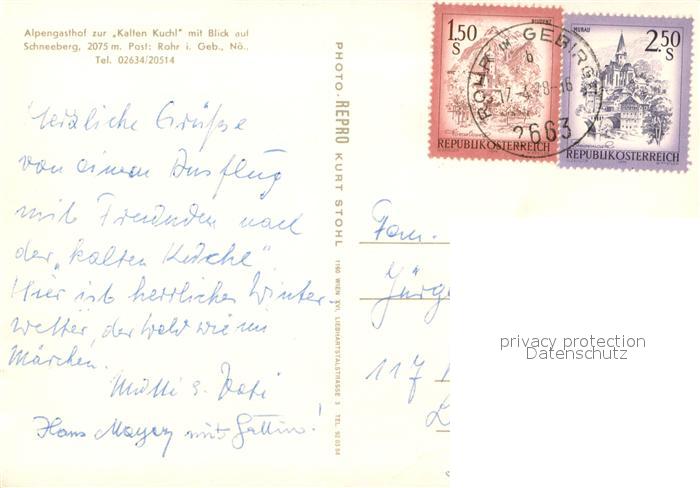 Alpengasthof zur „Kalten Kuchl" mit Blick auf
Schneeberg, 2075 m. Post: Rohr i. Geb., Nö.,
Tel. 02634/20514
Herzliche Grüsse
von einem Ausflug
mit Freunden nach
der „kalten Kuchl".
Hier ist herrliches Winter-
wetter, der Wald wie im
Märchen.
Mutti u. Vati
Hans Mayer mit Gattin!
PHOTO-REPRO KURT STOHL
1160 WIEN XVI, LIEBHARTSTALSTRASSE 3 TEL.
1.50
S
BLUDENZ
REPUBLIK ÖSTERREICH
MURAU
2.50
S
REPUBLIK ÖSTERREICH
ROHR IM GEBIRGE
b
2663
Fam.
Jürg
117
privacy protection
Datenschutz